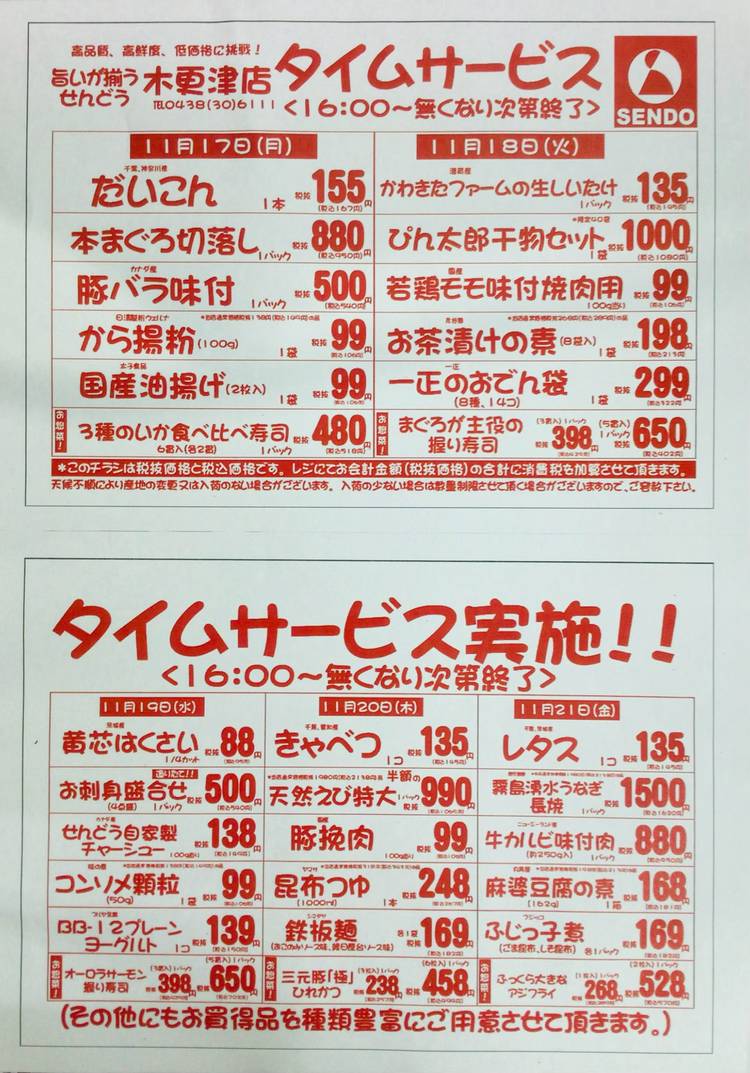 高品質、高鮮度、低価格に挑戦！
旨いが揃う
せんどう
木更津店
TEL0438(30)6111
タイムサービス
<16:00〜無くなり次第終了>
SENDO
11月17日(月)
千葉、神奈川産
だいこん 1本 税抜 155円
(税込167円)
本まぐろ切落し 1パック 税抜 880円
(税込950円)
カナダ産
豚バラ味付 1パック 税抜 500円
(税込540円)
から揚粉(100g) 1袋 税抜 99円
(税込106円)
太子食品
国産油揚げ(2枚入) 1袋 税抜 99円
(税込106円)
お惣菜！
3種のいか食べ比べ寿司
6貫入(各2貫) 1パック 税抜 480円
(税込518円)
11月18日(火)
かわきたファームの生しいたけ
1パック 税抜 135円
(税込145円)
*限定40袋
ぴん太郎干物セット 1袋 税抜 1000円
(税込1080円)
国産
若鶏モモ味付焼肉用
100g当り 税抜 99円
(税込106円)
お茶漬けの素(8袋入) 1袋 税抜 198円
(税込213円)
一正
一正のおでん袋
(8種、14コ) 1袋 税抜 299円
(税込322円)
お惣菜！
まぐろが主役の
握り寿司
(3貫入)1パック 税抜 398円
(5貫入)1パック 税抜 650円
(税込402円)
*このチラシは税抜価格と税込価格です。レジにてお会計金額(税抜価格)の合計に消費税を加算させて頂きます。
天候不順により産地の変更又は入荷のない場合がございます。入荷の少ない場合は数量制限させて頂く場合がございますので、ご容赦下さい。
タイムサービス実施!!
<16:00〜無くなり次第終了>
11月19日(水)
茨城産
黄芯はくさい
1/4カット 税抜 88円
(税込95円)
造りたて!!
お刺身盛合せ
(4点盛) 1パック 税抜 500円
(税込540円)
カナダ産
せんどう自家製
チャーシュー
100g当り 税抜 138円
(税込149円)
味の素
コンソメ顆粒
(50g) 1袋 税抜 99円
(税込106円)
BB-12プレーン
ヨーグルト 1コ 税抜 139円
(税込150円)
お惣菜！
オーロラサーモン
握り寿司
(3貫入)1パック 税抜 398円
(5貫入)1パック 税抜 650円
(税込702円)
11月20日(木)
千葉、愛知産
きゃべつ 1コ 税抜 135円
(税込145円)
*当店通常価格税抜1980円(税込2138円)を 半額の
天然えび特大 1パック 税抜 990円
国産
豚挽肉
100g当り 税抜 99円
(税込106円)
ヤマサ
昆布つゆ
(1000ml) 1本 税抜 248円
(税込267円)
鉄板麺 各1袋
(お好み焼ソース味、縁日屋台ソース味) 税抜 169円
(税込182円)
お惣菜！
三元豚「極」
ひれかつ
(3粒入)1パック 税抜 238円
(6粒入)1パック 税抜 458円
(税込494円)
11月21日(金)
千葉、茨城産
レタス 1コ 税抜 135円
(税込145円)
霧島湧水うなぎ
長焼 税抜 1500円
(税込1620円)
ニュージーランド産
牛カルビ味付肉
(約250g入) 1パック 税抜 880円
(税込950円)
丸美屋
麻婆豆腐の素
(162g) 1箱 税抜 168円
(税込181円)
フジッコ
ふじっ子煮
(ごま昆布、しそ昆布) 各1パック 税抜 169円
(税込182円)
お惣菜！
ふっくら大きな
アジフライ
(1枚入)1パック 税抜 268円
(2枚入)1パック 税抜 528円
(税込570円)
(その他にもお買得品を種類豊富にご用意させて頂きます。)